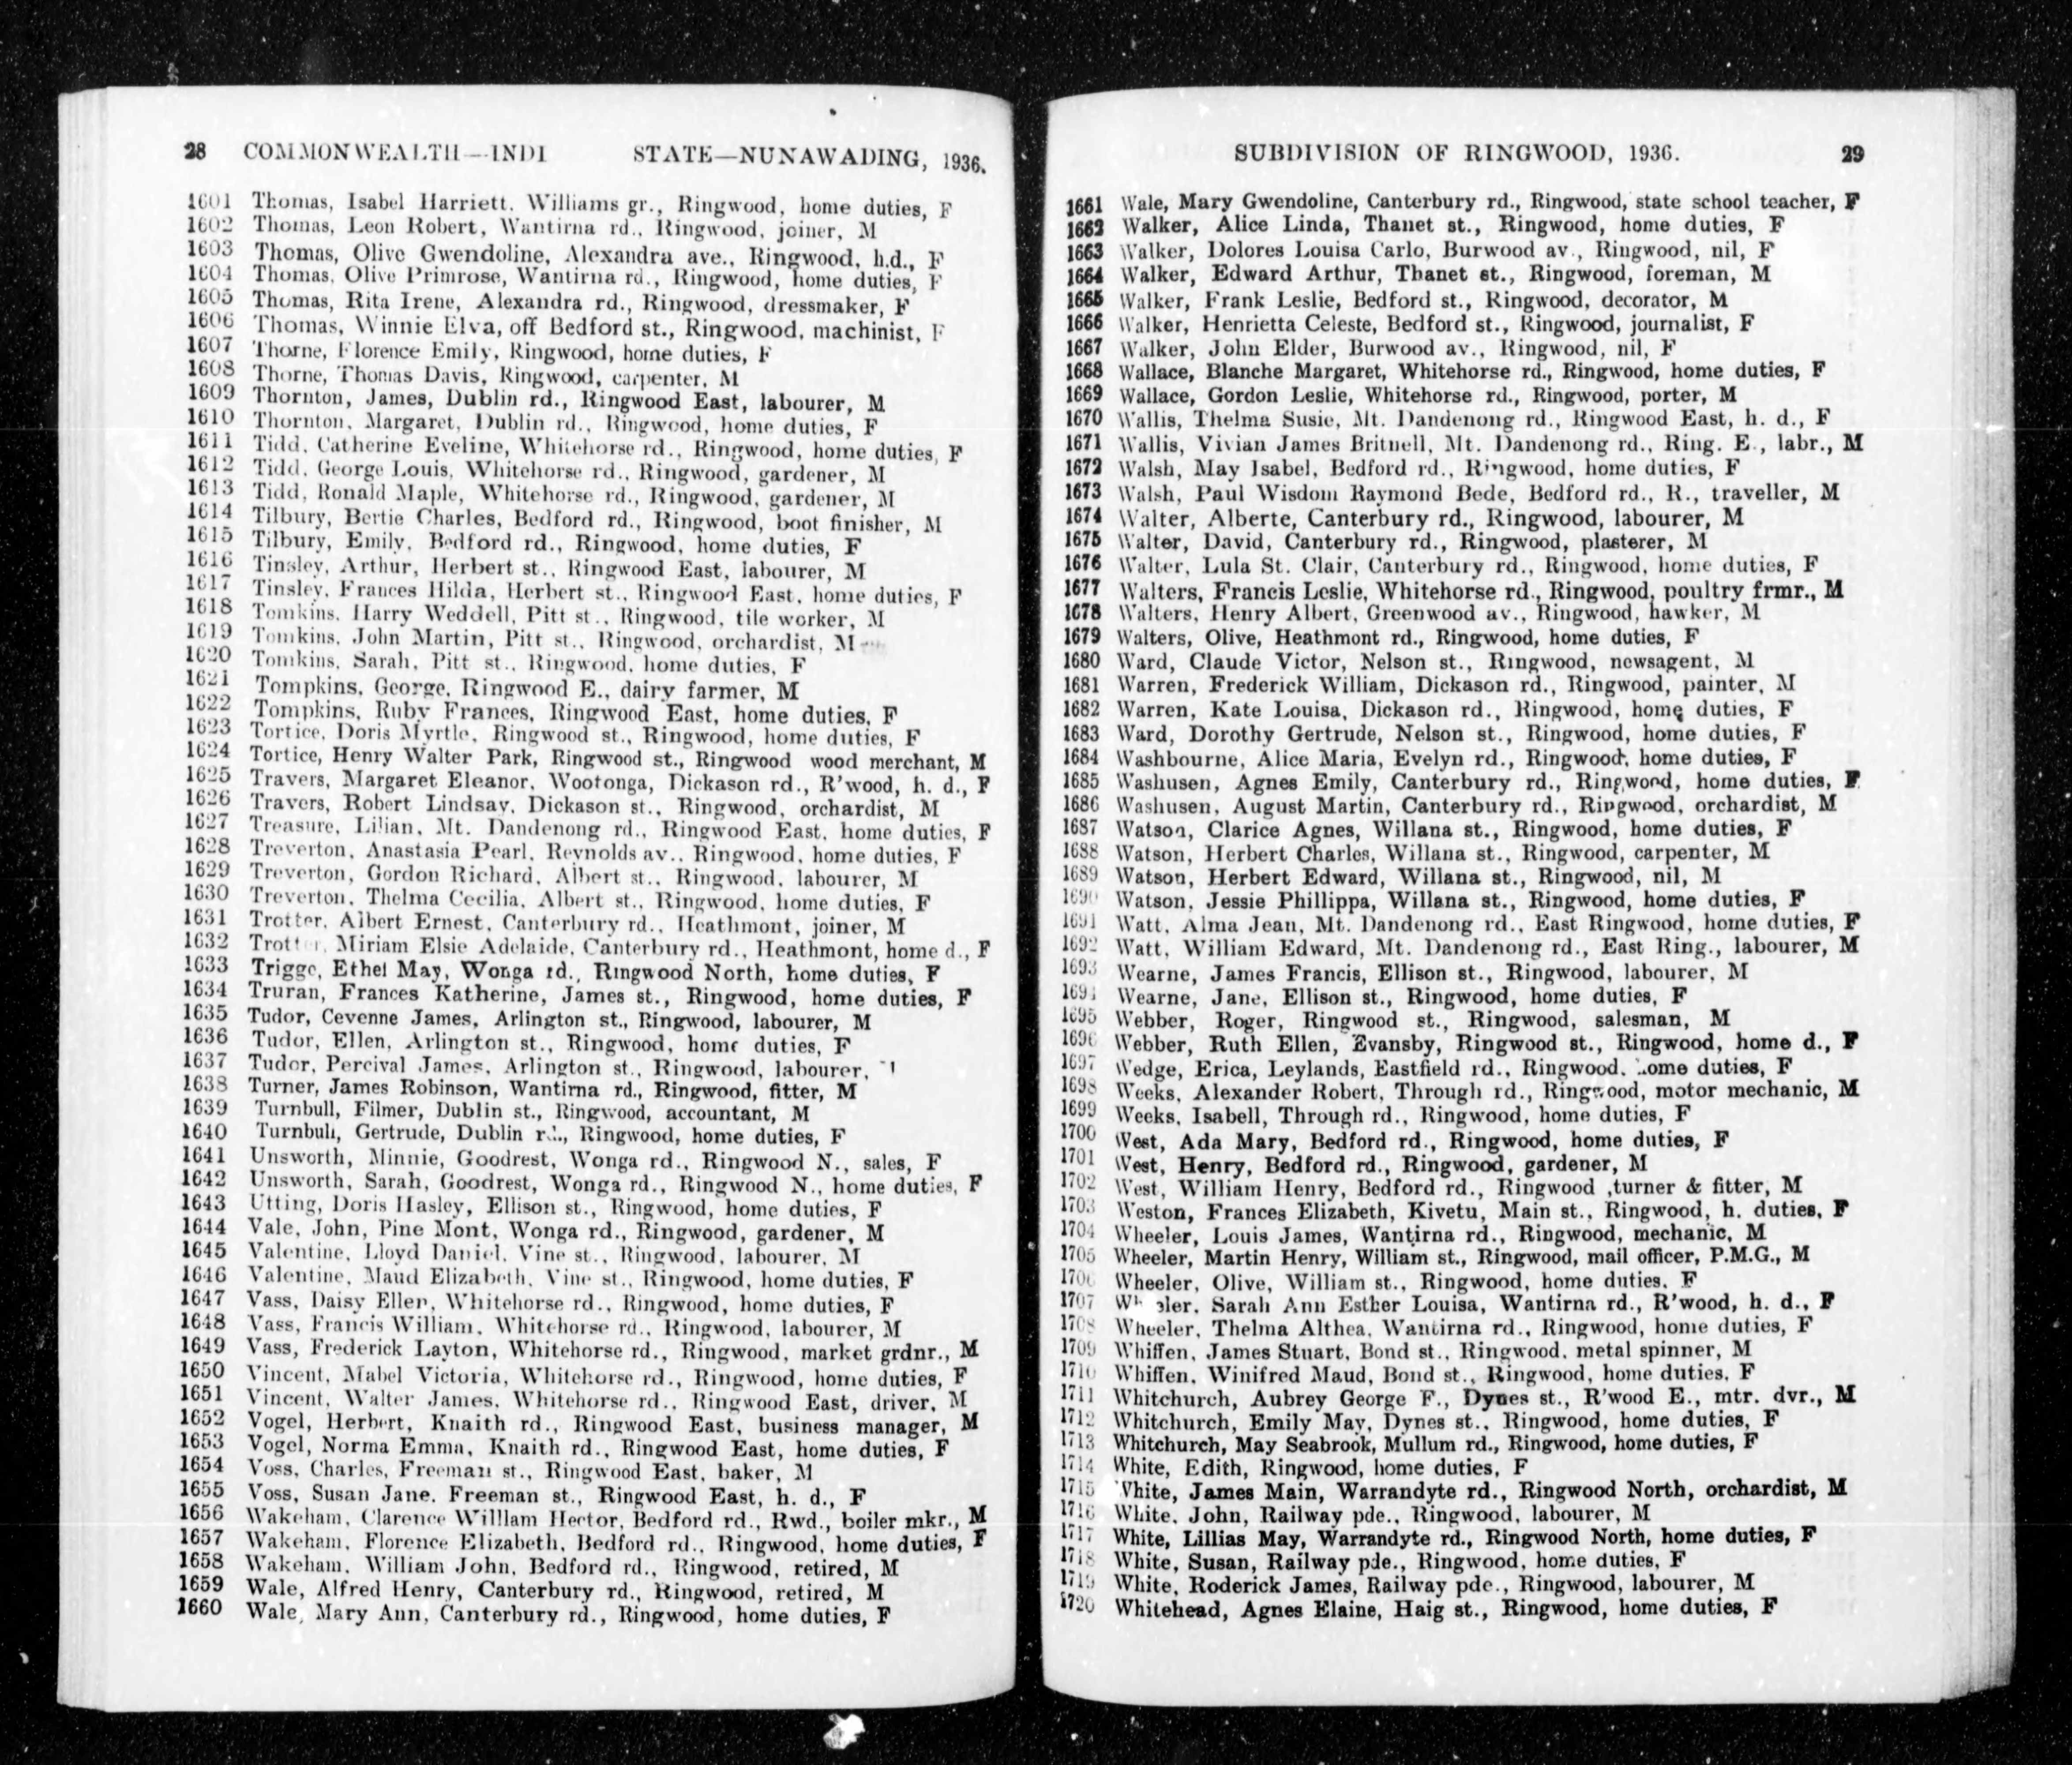 28 COMMONWEALTH—INDI STATE—NUNAWADING, 1936.
1601 Thomas, Isabel Harriett, Williams gr., Ringwood, home duties, F
1602 Thomas, Leon Robert, Wantirna rd., Ringwood, joiner, M
1603 Thomas, Olive Gwendoline, Alexandra ave., Ringwood, h.d., F
1604 Thomas, Olive Primrose, Wantirna rd., Ringwood, home duties, F
1605 Thomas, Rita Irene, Alexandra rd., Ringwood, dressmaker, F
1606 Thomas, Winnie Elva, off Bedford st., Ringwood, machinist, F
1607 Thorne, Florence Emily, Ringwood, home duties, F
1608 Thorne, Thomas Davis, Ringwood, carpenter, M
1609 Thornton, James, Dublin rd., Ringwood East, labourer, M
1610 Thornton, Margaret, Dublin rd., Ringwood, home duties, F
1611 Tidd, Catherine Eveline, Whitehorse rd., Ringwood, home duties, F
1612 Tidd, George Louis, Whitehorse rd., Ringwood, gardener, M
1613 Tidd, Ronald Maple, Whitehorse rd., Ringwood, gardener, M
1614 Tilbury, Bertie Charles, Bedford rd., Ringwood, boot finisher, M
1615 Tilbury, Emily, Bedford rd., Ringwood, home duties, F
1616 Tinsley, Arthur, Herbert st., Ringwood East, labourer, M
1617 Tinsley, Frances Hilda, Herbert st., Ringwood East, home duties, F
1618 Tomkins, Harry Weddell, Pitt st., Ringwood, tile worker, M
1619 Tomkins, John Martin, Pitt st., Ringwood, orchardist, M
1620 Tomkins, Sarah, Pitt st., Ringwood, home duties, F
1621 Tompkins, George, Ringwood E., dairy farmer, M
1622 Tompkins, Ruby Frances, Ringwood East, home duties, F
1623 Tortice, Doris Myrtle, Ringwood st., Ringwood, home duties, F
1624 Tortice, Henry Walter Park, Ringwood st., Ringwood wood merchant, M
1625 Travers, Margaret Eleanor, Wootonga, Dickason rd., R'wood, h. d., F
1626 Travers, Robert Lindsay, Dickason st., Ringwood, orchardist, M
1627 Treasure, Lilian, Mt. Dandenong rd., Ringwood East, home duties, F
1628 Treverton, Anastasia Pearl, Reynolds av., Ringwood, home duties, F
1629 Treverton, Gordon Richard, Albert st., Ringwood, labourer, M
1630 Treverton, Thelma Cecilia, Albert st., Ringwood, home duties, F
1631 Trotter, Albert Ernest, Canterbury rd., Heathmont, joiner, M
1632 Trotter, Miriam Elsie Adelaide, Canterbury rd., Heathmont, home d., F
1633 Trigge, Ethel May, Wonga rd., Ringwood North, home duties, F
1634 Truran, Frances Katherine, James st., Ringwood, home duties, F
1635 Tudor, Cevenne James, Arlington st., Ringwood, labourer, M
1636 Tudor, Ellen, Arlington st., Ringwood, home duties, F
1637 Tudor, Percival James, Arlington st., Ringwood, labourer,
1638 Turner, James Robinson, Wantirna rd., Ringwood, fitter, M
1639 Turnbull, Filmer, Dublin st., Ringwood, accountant, M
1640 Turnbull, Gertrude, Dublin rd., Ringwood, home duties, F
1641 Unsworth, Minnie, Goodrest, Wonga rd., Ringwood N., sales, F
1642 Unsworth, Sarah, Goodrest, Wonga rd., Ringwood N., home duties, F
1643 Utting, Doris Hasley, Ellison st., Ringwood, home duties, F
1644 Vale, John, Pine Mont, Wonga rd., Ringwood, gardener, M
1645 Valentine, Lloyd Daniel, Vine st., Ringwood, labourer, M
1646 Valentine, Maud Elizabeth, Vine st., Ringwood, home duties, F
1647 Vass, Daisy Ellen, Whitehorse rd., Ringwood, home duties, F
1648 Vass, Francis William, Whitehorse rd., Ringwood, labourer, M
1649 Vass, Frederick Layton, Whitehorse rd., Ringwood, market grdnr., M
1650 Vincent, Mabel Victoria, Whitehorse rd., Ringwood, home duties, F
1651 Vincent, Walter James, Whitehorse rd., Ringwood East, driver, M
1652 Vogel, Herbert, Knaith rd., Ringwood East, business manager, M
1653 Vogel, Norma Emma, Knaith rd., Ringwood East, home duties, F
1654 Voss, Charles, Freeman st., Ringwood East, baker, M
1655 Voss, Susan Jane, Freeman st., Ringwood East, h. d., F
1656 Wakeham, Clarence Willlam Hector, Bedford rd., Rwd., boiler mkr., M
1657 Wakeham, Florence Elizabeth, Bedford rd., Ringwood, home duties, F
1658 Wakeham, William John, Bedford rd., Ringwood, retired, M
1659 Wale, Alfred Henry, Canterbury rd., Ringwood, retired, M
1660 Wale, Mary Ann, Canterbury rd., Ringwood, home duties, F
SUBDIVISION OF RINGWOOD, 1936. 29
1661 Wale, Mary Gwendoline, Canterbury rd., Ringwood, state school teacher, F
1662 Walker, Alice Linda, Thanet st., Ringwood, home duties, F
1663 Walker, Dolores Louisa Carlo, Burwood av., Ringwood, nil, F
1664 Walker, Edward Arthur, Thanet st., Ringwood, foreman, M
1665 Walker, Frank Leslie, Bedford st., Ringwood, decorator, M
1666 Walker, Henrietta Celeste, Bedford st., Ringwood, journalist, F
1667 Walker, John Elder, Burwood av., Ringwood, nil, F
1668 Wallace, Blanche Margaret, Whitehorse rd., Ringwood, home duties, F
1669 Wallace, Gordon Leslie, Whitehorse rd., Ringwood, porter, M
1670 Wallis, Thelma Susie, Mt. Dandenong rd., Ringwood East, h. d., F
1671 Wallis, Vivian James Britnell, Mt. Dandenong rd., Ring. E., labr., M
1672 Walsh, May Isabel, Bedford rd., Ringwood, home duties, F
1673 Walsh, Paul Wisdom Raymond Bede, Bedford rd., R., traveller, M
1674 Walter, Alberte, Canterbury rd., Ringwood, labourer, M
1675 Walter, David, Canterbury rd., Ringwood, plasterer, M
1676 Walter, Lula St. Clair, Canterbury rd., Ringwood, home duties, F
1677 Walters, Francis Leslie, Whitehorse rd., Ringwood, poultry frmr., M
1678 Walters, Henry Albert, Greenwood av., Ringwood, hawker, M
1679 Walters, Olive, Heathmont rd., Ringwood, home duties, F
1680 Ward, Claude Victor, Nelson st., Ringwood, newsagent, M
1681 Warren, Frederick William, Dickason rd., Ringwood, painter, M
1682 Warren, Kate Louisa, Dickason rd., Ringwood, home duties, F
1683 Ward, Dorothy Gertrude, Nelson st., Ringwood, home duties, F
1684 Washbourne, Alice Maria, Evelyn rd., Ringwood, home duties, F
1685 Washusen, Agnes Emily, Canterbury rd., Ringwood, home duties, F
1686 Washusen, August Martin, Canterbury rd., Ringwood, orchardist, M
1687 Watson, Clarice Agnes, Willana st., Ringwood, home duties, F
1688 Watson, Herbert Charles, Willana st., Ringwood, carpenter, M
1689 Watson, Herbert Edward, Willana st., Ringwood, nil, M
1690 Watson, Jessie Phillippa, Willana st., Ringwood, home duties, F
1691 Watt, Alma Jean, Mt. Dandenong rd., East Ringwood, home duties, F
1692 Watt, William Edward, Mt. Dandenong rd., East Ring., labourer, M
1693 Wearne, James Francis, Ellison st., Ringwood, labourer, M
1694 Wearne, Jane, Ellison st., Ringwood, home duties, F
1695 Webber, Roger, Ringwood st., Ringwood, salesman, M
1696 Webber, Ruth Ellen, Evansby, Ringwood st., Ringwood, home d., F
1697 Wedge, Erica, Leylands, Eastfield rd., Ringwood, home duties, F
1698 Weeks, Alexander Robert, Through rd., Ringwood, motor mechanic, M
1699 Weeks, Isabell, Through rd., Ringwood, home duties, F
1700 West, Ada Mary, Bedford rd., Ringwood, home duties, F
1701 West, Henry, Bedford rd., Ringwood, gardener, M
1702 West, William Henry, Bedford rd., Ringwood ,turner & fitter, M
1703 Weston, Frances Elizabeth, Kivetu, Main st., Ringwood, h. duties, F
1704 Wheeler, Louis James, Wantirna rd., Ringwood, mechanic, M
1705 Wheeler, Martin Henry, William st., Ringwood, mail officer, P.M.G., M
1706 Wheeler, Olive, William st., Ringwood, home duties, F
1707 Wheeler, Sarah Ann Esther Louisa, Wantirna rd., R'wood, h. d., F
1708 Wheeler, Thelma Althea, Wantirna rd., Ringwood, home duties, F
1709 Whiffen, James Stuart, Bond st., Ringwood, metal spinner, M
1710 Whiffen, Winifred Maud, Bond st., Ringwood, home duties, F
1711 Whitchurch, Aubrey George F., Dynes st., R'wood E., mtr. dvr., M
1712 Whitchurch, Emily May, Dynes st., Ringwood, home duties, F
1713 Whitchurch, May Seabrook, Mullum rd., Ringwood, home duties, F
1714 White, Edith, Ringwood, home duties, F
1715 White, James Main, Warrandyte rd., Ringwood North, orchardist, M
1716 White, John, Railway pde., Ringwood, labourer, M
1717 White, Lillias May, Warrandyte rd., Ringwood North, home duties, F
1718 White, Susan, Railway pde., Ringwood, home duties, F
1719 White, Roderick James, Railway pde., Ringwood, labourer, M
1720 Whitehead, Agnes Elaine, Haig st., Ringwood, home duties, F